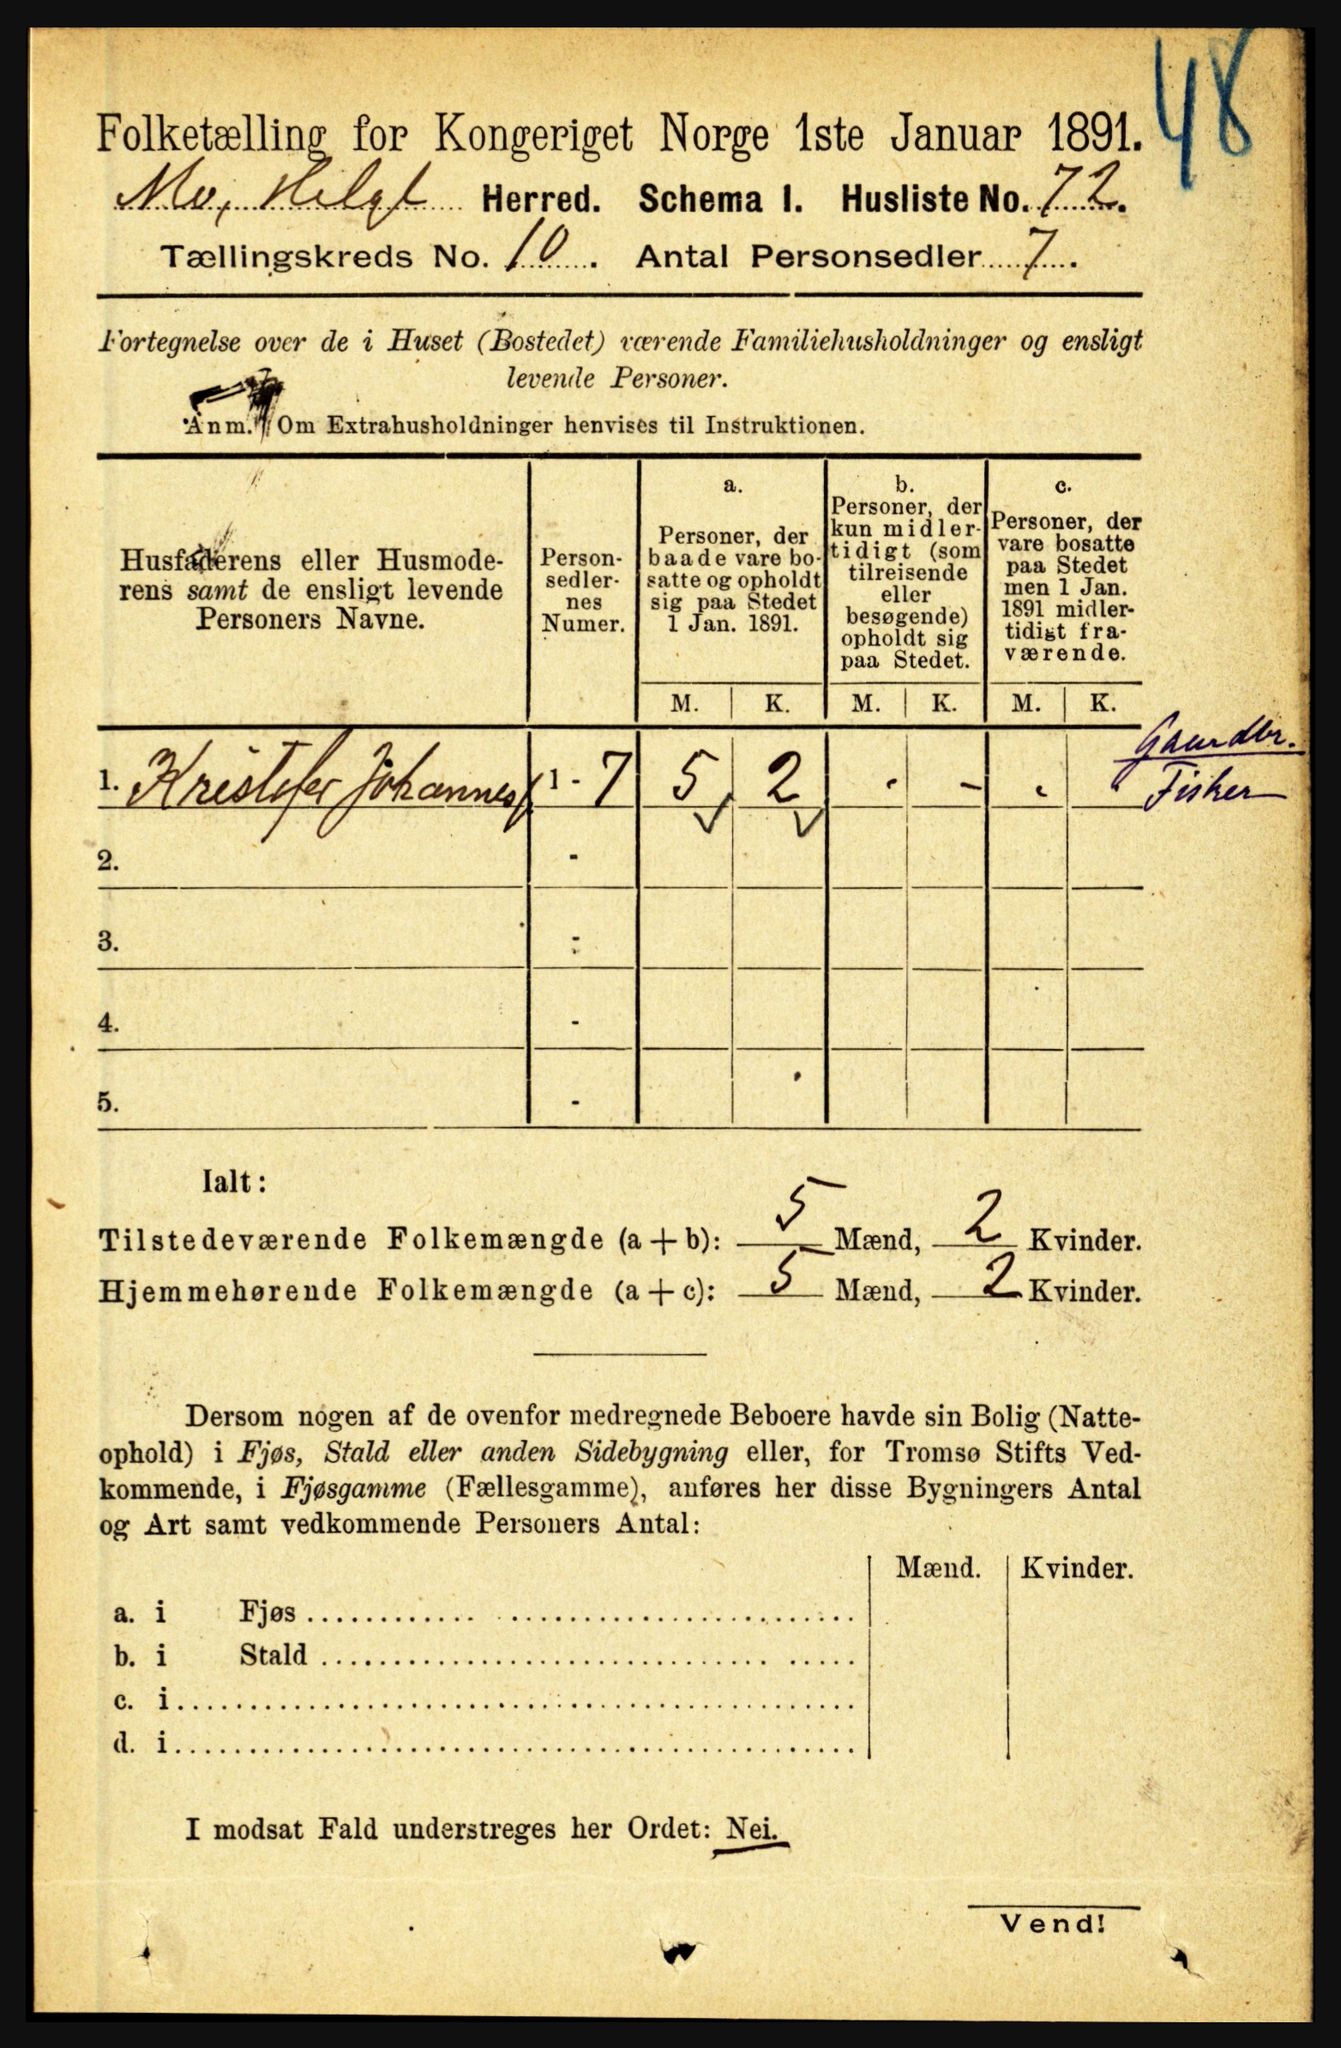 48
Folketælling for Kongeriget Norge 1ste Januar 1891.
Mo, Helgl Herred. Schema I. Husliste No. 72.
Tællingskreds No. 10. Antal Personsedler 7.
Fortegnelse over de i Huset (Bostedet) værende Familiehusholdninger og ensligt
levende Personer.
Anm. Om Extrahusholdninger henvises til Instruktionen.
Husfaderens eller Husmode-
rens samt de ensligt levende
Personers Navne.
Person-
sedler-
nes
Numer.
a.
Personer, der
baade vare bo-
satte og opholdt
sig paa Stedet
1 Jan. 1891.
b.
Personer, der
kun midler-
tidigt (som
tilreisende
eller
besøgende)
opholdt sig
paa Stedet.
c.
Personer, der
vare bosatte
paa Stedet
men 1 Jan.
1891 midler-
tidigt fra-
værende.
M. K. M. K. M. K.
Gaardbr.
1. Kristofer Johannes 1 - 7 5 2 - Fisker
2. -
3. -
4. -
5. -
Ialt:
Tilstedeværende Folkemængde (a + b): 5 Mænd, 2 Kvinder.
Hjemmehørende Folkemængde (a + c): 5 Mænd, 2 Kvinder.
Dersom nogen af de ovenfor medregnede Beboere havde sin Bolig (Natte-
ophold) i Fjøs, Stald eller anden Sidebygning eller, for Tromsø Stifts Ved-
kommende, i Fjøsgamme (Fællesgamme), anføres her disse Bygningers Antal
og Art samt vedkommende Personers Antal:
Mænd. Kvinder.
a. i Fjøs
b. i Stald
c. i
d. i
I modsat Fald understreges her Ordet: Nei.
Vend!